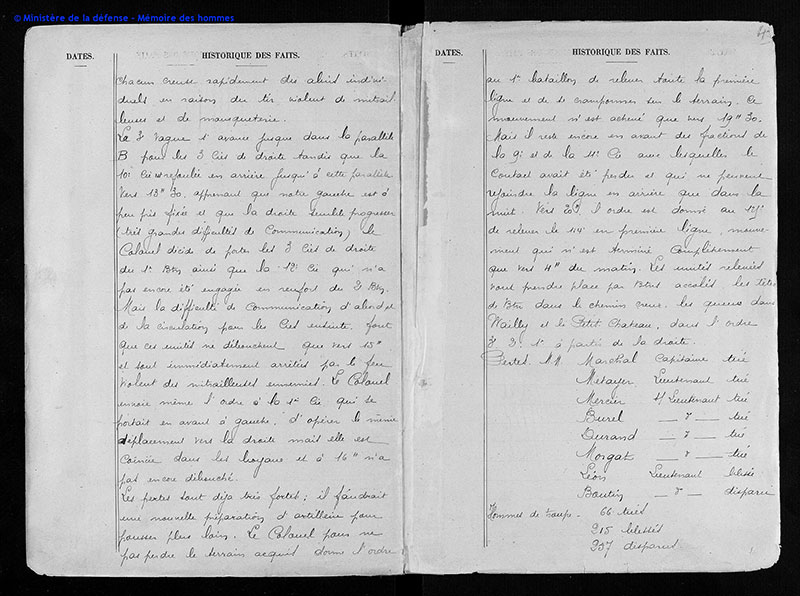 © Ministère de la défense - Mémoire des hommes
DATES.
HISTORIQUE DES FAITS.
Chacun creuse rapidement des abris indivi-
duels en raison du tir violent de mitrail
leuses et de mousqueterie.
La 2e Vague s'avance jusque dans la parallèle
B pour les 3 Cies de droite tandis que la
10e Cie est refoulée en arrière jusqu'à cette parallèle
Vers 13h30, apprenant que notre gauche est à
peu près fixée et que la droite semble progresser
(très grandes difficultés de Communication) le
Colonel décide de porter les 3 Cies de droite
du 1er Btn ainsi que la 12e Cie qui n'a
pas encore été engagée en renfort du 2e Btn.
Mais la difficulté de Communication d'abord et
de la circulation pour les Cies ensuite, font
que ces unités ne débouchent que vers 15h
et sont immédiatement arrêtés par le feu
violent des mitrailleuses ennemies. Le Colonel
envoie même l'ordre à la 1re Cie qui se
portait en avant à gauche, d'opérer le même
déplacement vers la droite mais elle est
Coincée dans les boyaux et à 16h n'a
pas encore débouché.
Les pertes sont déjà très fortes ; il faudrait
une nouvelle préparation d'artillerie pour
pousser plus loin. Le Colonel pour ne
pas perdre le terrain acquis donne l'ordre
DATES.
HISTORIQUE DES FAITS.
au 1er bataillon de relever toute la première
ligne et de se cramponner sur le terrain. Ce
mouvement n'est achevé que vers 19h30.
Mais il reste encore en avant des fractions de
la 9e et de la 11e Cie avec lesquelles le
Contact avait été perdu et qui ne peuvent
rejoindre la ligne en arrière que dans la
nuit. Vers 20h, l'ordre est donné au
de relever le 44e en première ligne, mouve-
ment qui n'est terminé complètement
que vers 4h du matin. Les unités relevées
vont prendre place par Btns accolés, les têtes
de Btn dans le chemin creux, les queues dans
Wailly et le Petit Chateau, dans l'ordre
2. 3. 1er à partir de la droite.
Pertes. MM. Marchal Capitaine tué
Métayer Lieutenant tué
Mercier s/Lieutenant tué
Burel — d° — tué
Durand — d° — tué
Morgat — d° — tué
Léon Lieutenant blessé
Boutin — d° — disparu
Hommes de troupe. 66 tués
215 blessés
257 disparus